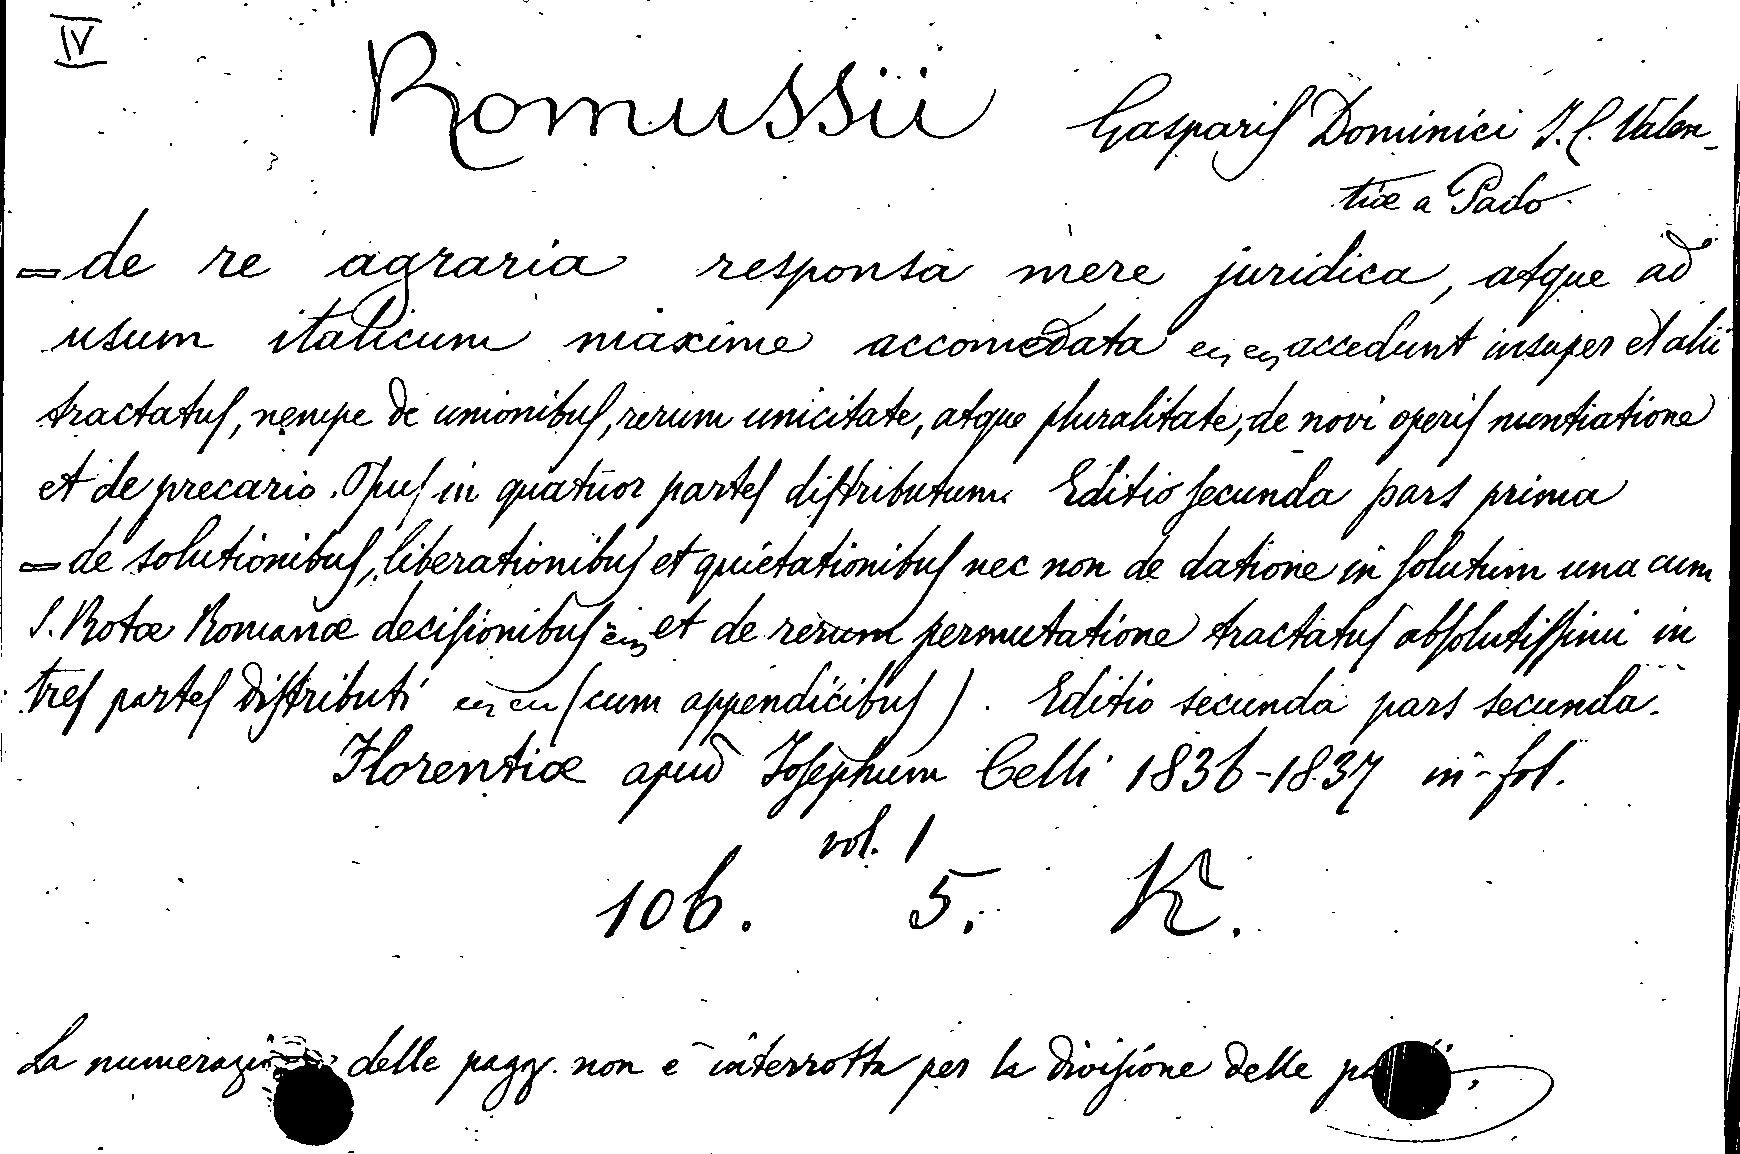 IV
Romussii Gasparis Dominici J. C. Valen-
tiæ a Pado.
= de re agraria responsa mere juridica, atque ad
usum italicum maxime accomodata accedunt insuper et alii
tractatus, nempe de unionibus, rerum unicitate, atque pluralitate, de novi operis nuntiatione
et de precario. Opus in quatuor partes distributum Editio secunda pars prima
= de solutionibus, liberationibus et quietationibus nec non de datione in solutum una cum
S. Rotæ Romanæ decisionibus et de rerum permutatione tractatus absolutissimi in
tres partes distributi (cum appendicibus). Editio secunda pars secunda.
Florentiæ apud Josephum Celli 1836-1837 in-fol.
vol. 1
106. 5. K.
La delle pagg. non è interrotta per la divisione delle